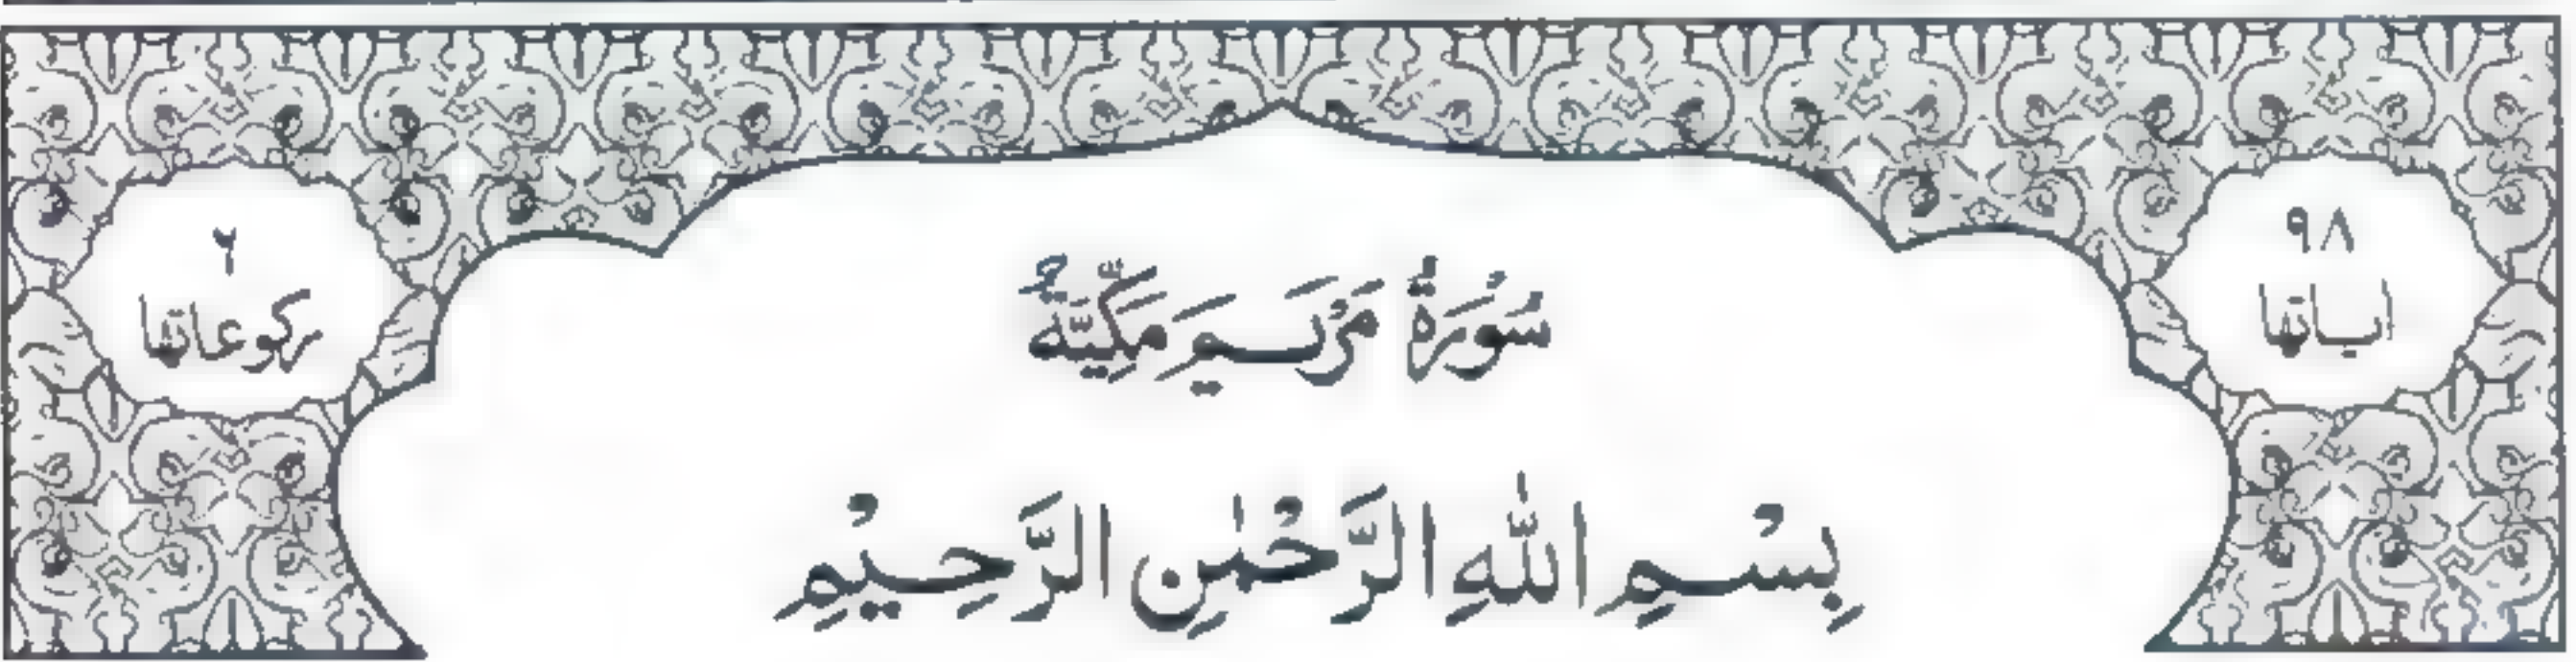 ٩٨
اٰیاتها
سُوْرَةُ مَرْیَمَ مَكِّیَّةٌ
٦
ركوعاتها
بِسْمِ اللّٰهِ الرَّحْمٰنِ الرَّحِیْمِ